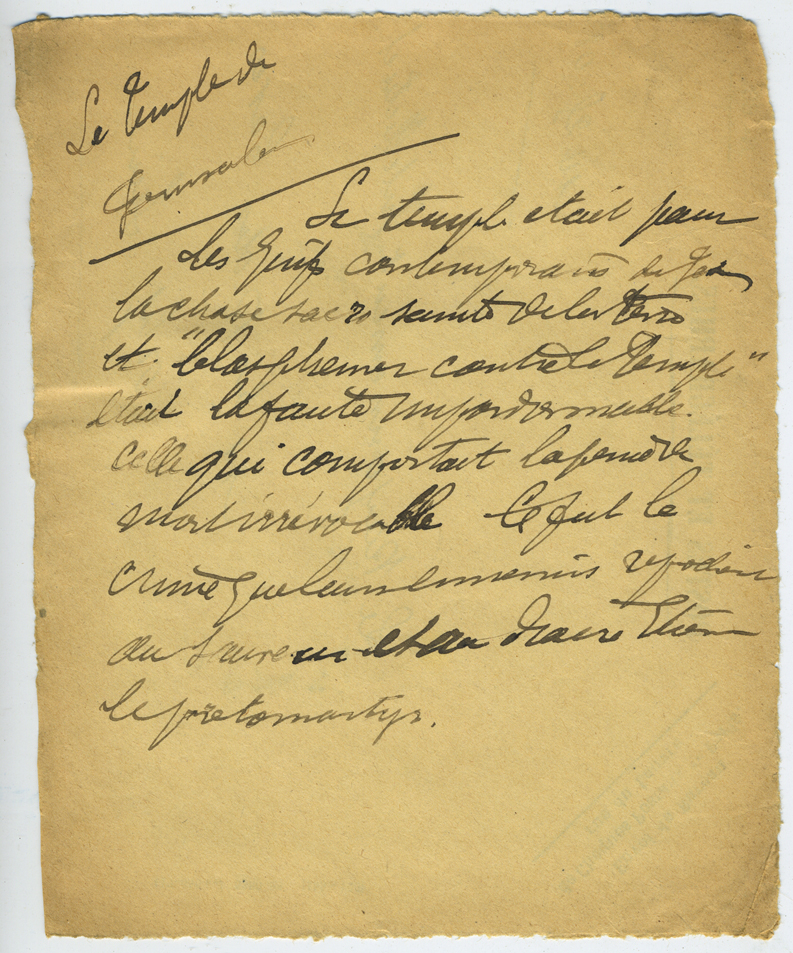 Le temple de
Jerusalem
Le temple etait pour
les Juifs contemporains de
la chose sacro sainte de la terre
et "blasphemer contre le Temple"
était la faute impardonnable.
celle qui comportait la peine de
mort irrévocable Ce fut le
crime que leurs ennemis
au Sauveur et au diacre Etienne
le protomartyr.